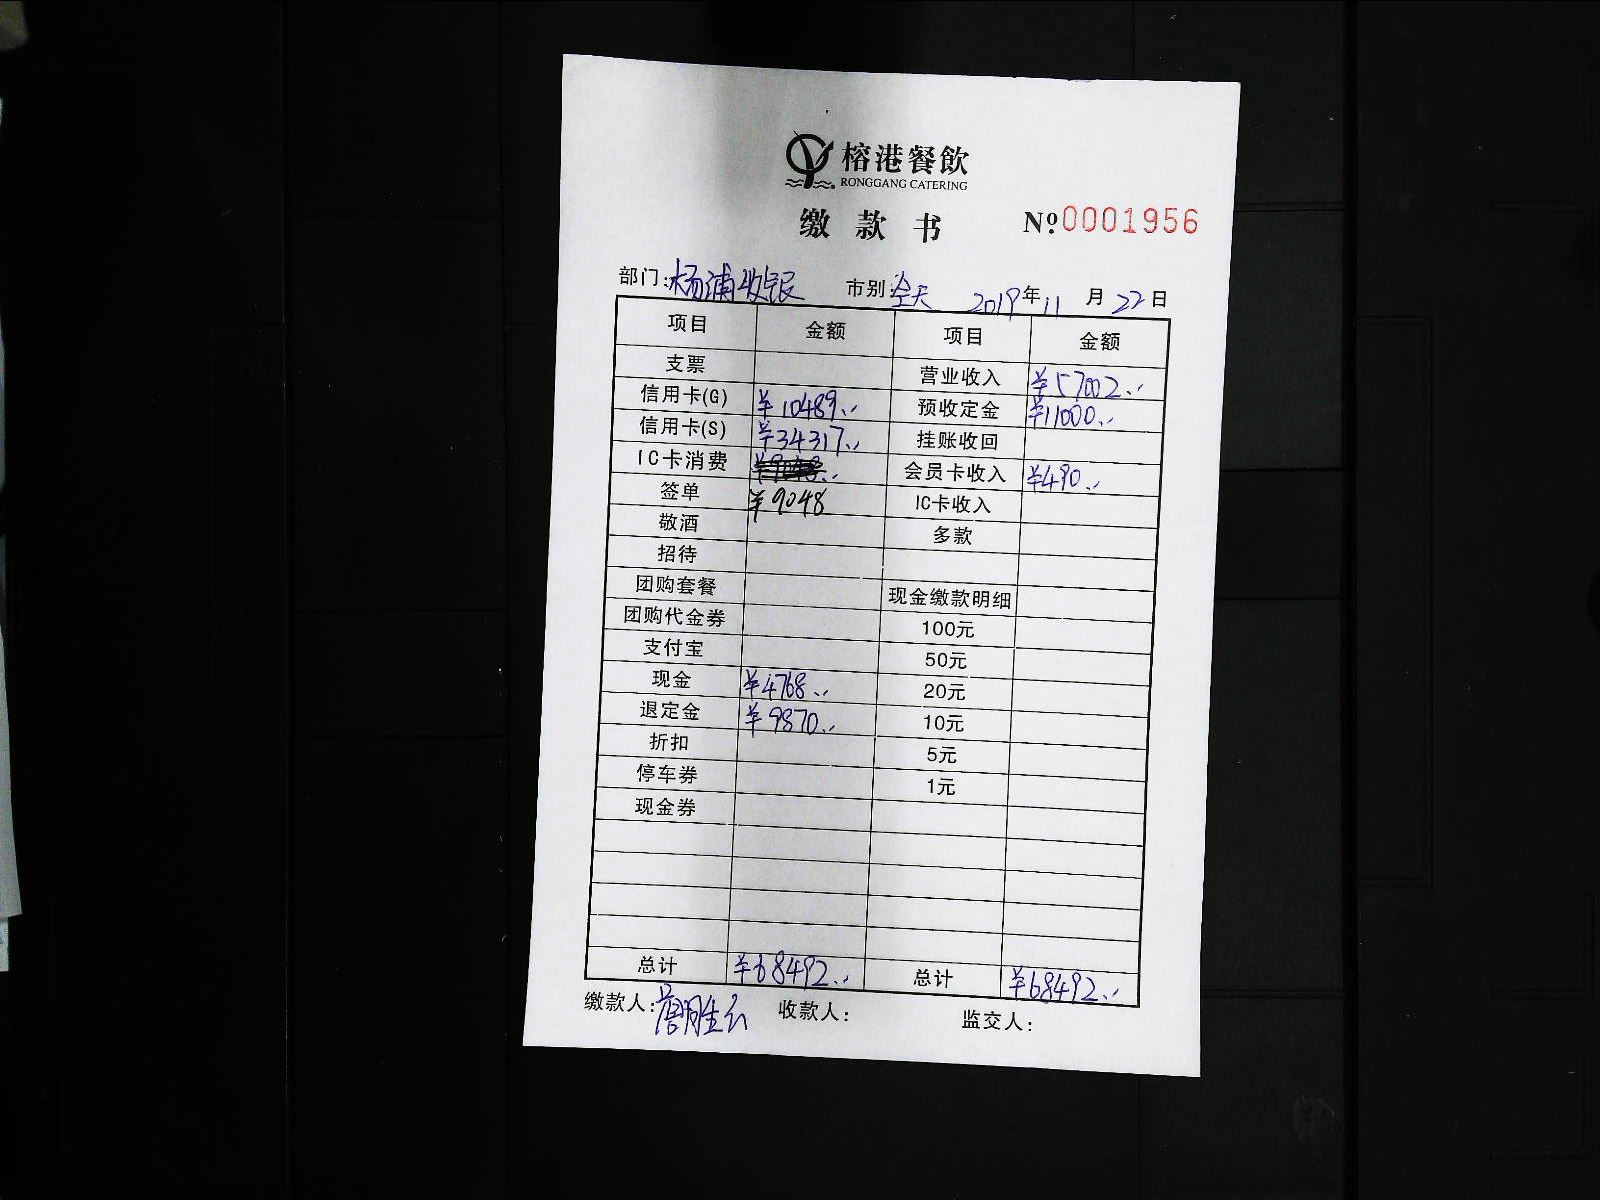 榕港餐飲
RONGGANG CATERING
缴款书 №0001956
部门:杨浦收银 市别:全天 2019年11月22日
项目 金额 项目 金额
支票 营业收入 ¥57002.-
信用卡(G) ¥10489.- 预收定金 ¥11000.-
信用卡(S) ¥34317.- 挂账收回
IC卡消费 会员卡收入 ¥490.-
签单 ¥9048 IC卡收入
敬酒 多款
招待
团购套餐 现金缴款明细
团购代金券 100元
支付宝 50元
现金 ¥4768.- 20元
退定金 ¥9870.- 10元
折扣 5元
停车券 1元
现金券
总计 ¥68492.- 总计 ¥68492.-
缴款人: 收款人: 监交人: